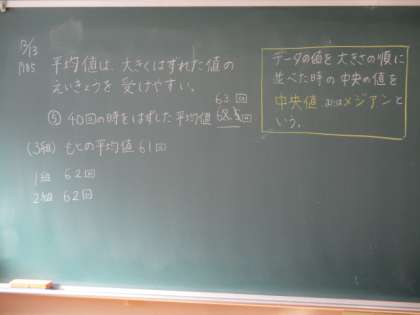 P185
平均値は、大きくはずれた値の
えいきょうを 受けやすい。
⑤ 40回の時をはずした平均値
63回
(3組) もとの平均値 61回
1組 62回
2組 62回
データの値を大きさの順に
並べた時の中央の値を
中央値 またはメジアンと
いう。